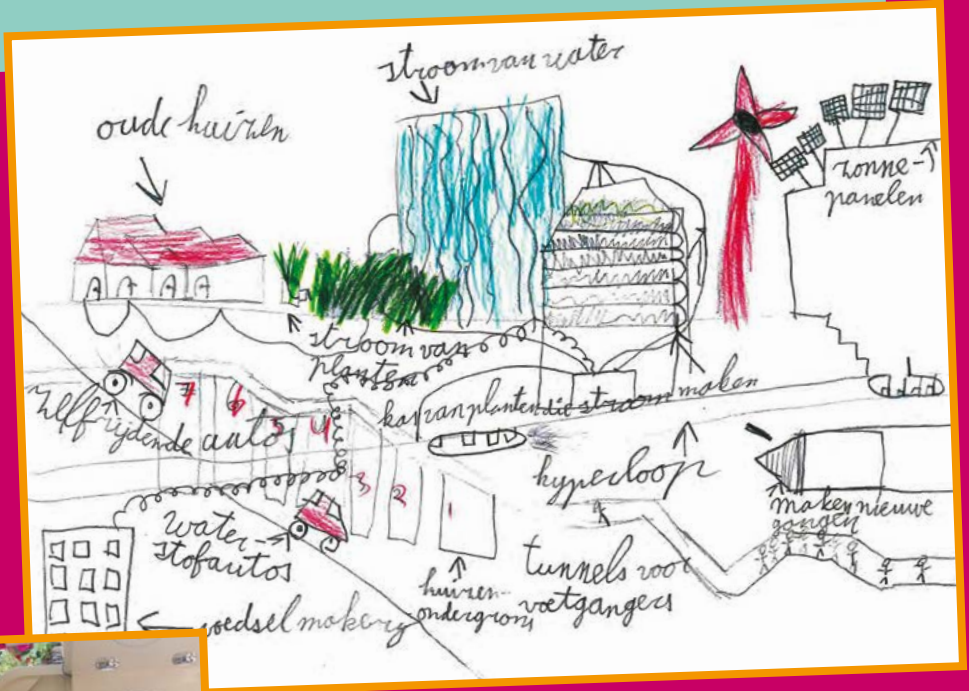 stroom van water
oude huizen
zonne-
panelen
stroom van
planten
kas van planten die stroom maken
zelf rijdende autos
7 6 5 4 3 2 1
hyperloop
maken nieuwe
gangen
water-
stofautos
tunnels voor
voetgangers
huizen
ondergrons
voedsel makerij